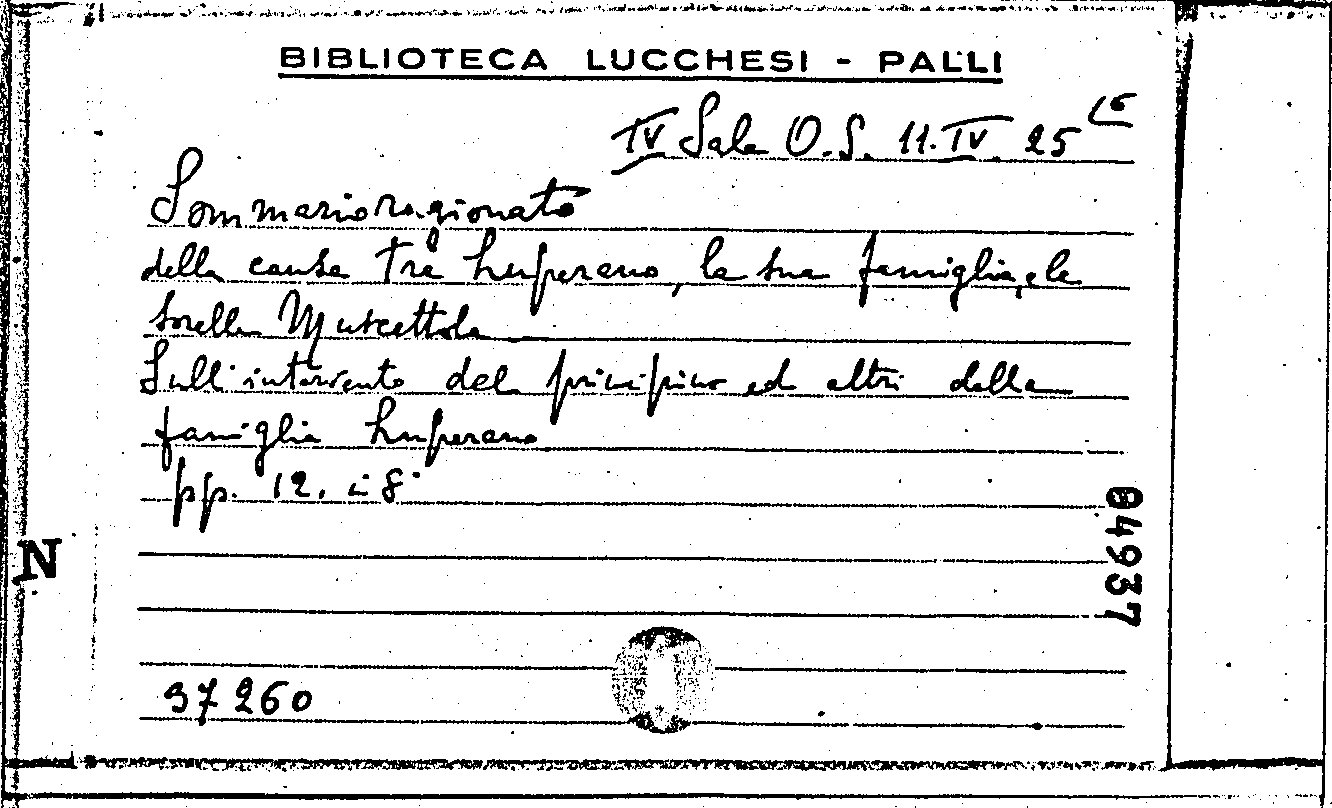 BIBLIOTECA LUCCHESI - PALLI
IV Sala O.S. 11. IV. 25 16
Sommario ragionato
della causa Trà Luperano, la sua famiglia, e le
sorelle Muscettola
Sull'intervento del principino ed altri della
famiglia Luperano
pp. 12. i 8°
04937
N
37260